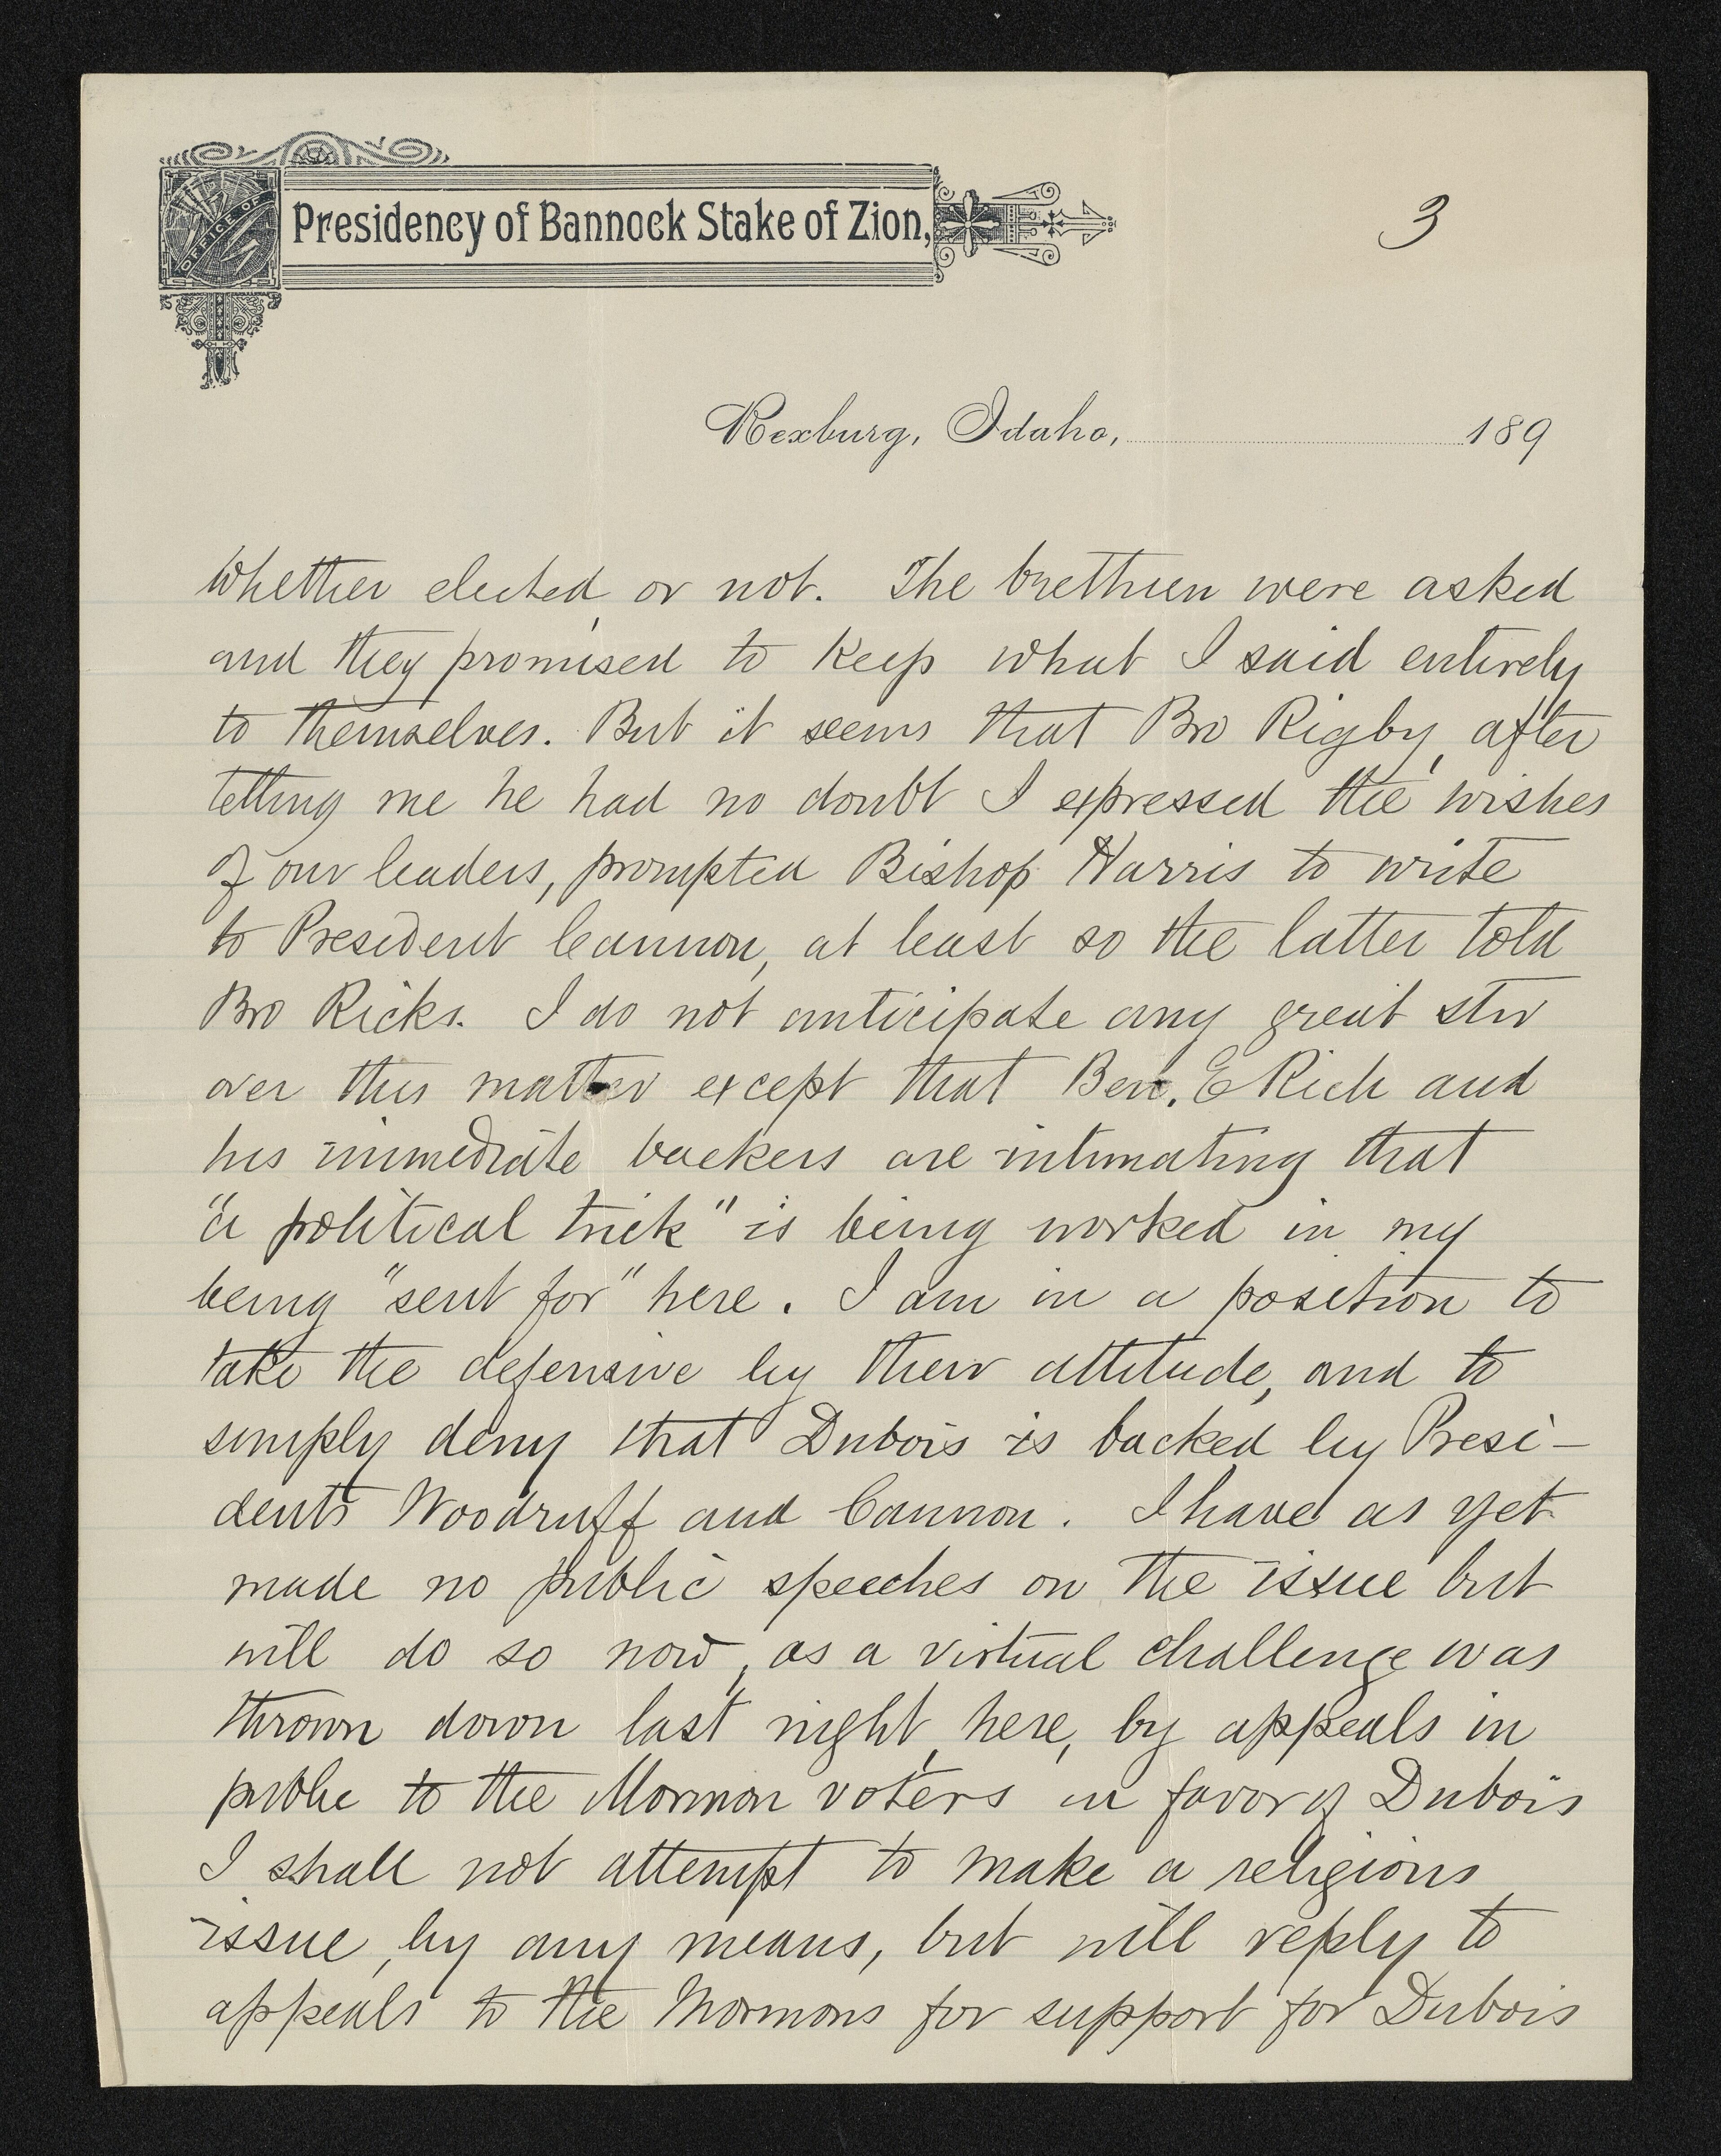 OFFICE OF
Presidency of Bannock Stake of Zion,
3
Rexburg, Idaho, 189
whether elected, or not. The brethren were asked
and they promised to keep what I said entirely
to themselves. But it seems that Bro Rigby, after
telling me he had no doubt I expressed the wishes
of our leaders, prompted Bishop Harris to write
to President Cannon, at least so the latter told
Bro Ricks. I do not anticipate any great stir
over this matter except that Ben. E Rich and
his immediate backers are intimating that
"a political trick" is being worked in my
being "sent for" here. I am in a position to
take the defensive by their attitude, and to
simply deny that Dubois is backed by Presi-
dents Woodruff and Cannon. I have as yet
made no public speeches on the issue but
will do so now, as a virtual challenge was
thrown down last night, here, by appeals in
public to the Mormon voters in favor of Dubois
I shall not attempt to make a religious
issue, by any means, but will reply to
appeals to the Mormons for support for Dubois